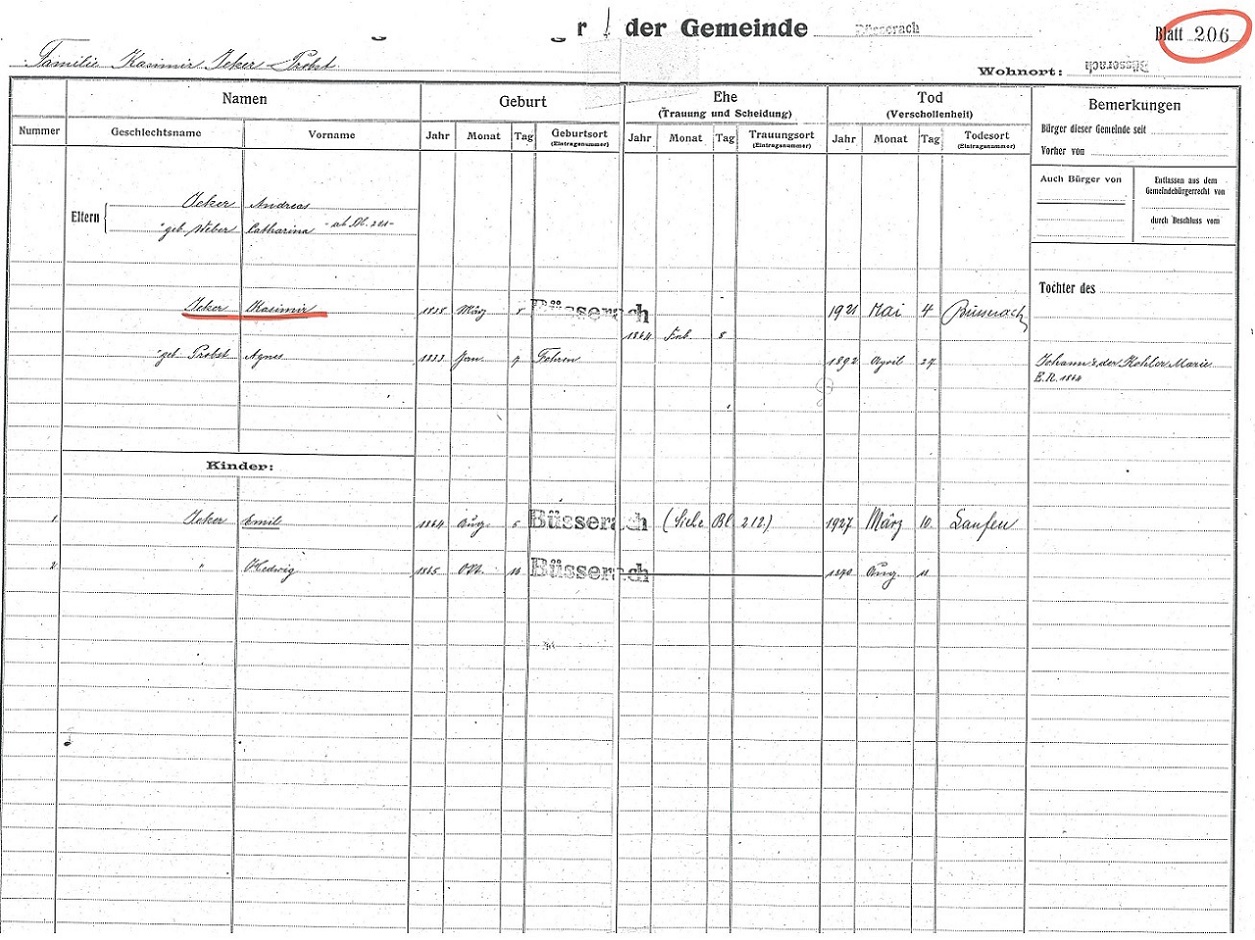 r der Gemeinde Büsserach Blatt 206
Familie Kasimir Jeker-Probst
Wohnort: Büsserach
Namen Geburt Ehe Tod Bemerkungen
(Trauung und Scheidung) (Verschollenheit)
Nummer Geschlechtsname Vorname Jahr Monat Tag Geburtsort Jahr Monat Tag Trauungsort Jahr Monat Tag Todesort
(Eintragsnummer) (Eintragsnummer) (Eintragsnummer)
Bürger dieser Gemeinde seit
Vorher von
Auch Bürger von
Entlassen aus dem Gemeindebürgerrecht von
durch Beschluss vom
Eltern
Jeker Andreas
geb. Weber Catharina
Tochter des
Jeker Kasimir 1835 März 5 Büsserach 1921 Mai 4 Büsserach
1864 Feb. 8
geb. Probst Agnes 1833 Jan. 9 Fehren 1892 April 27 Johann & der Kohler Marie
E.R. 1864
Kinder:
1 Jeker Emil 1864 Aug. 5 Büsserach (Siehe Bl 212) 1927 März 10. Laufen
2 " Hedwig 1865 Okt. Büsserach 1890 Aug. 11